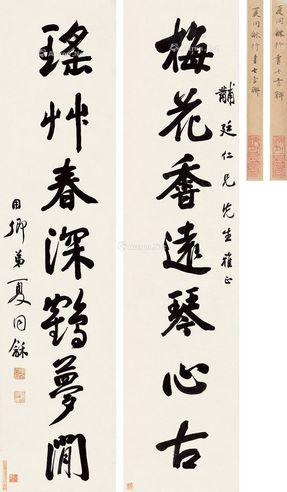 梅花香遠琴心古
黼廷仁兄先生雅正
瑤艸春深鶴夢閒
用卿弟夏同龢
夏同龢行書七言聯
夏同龢行書七言聯